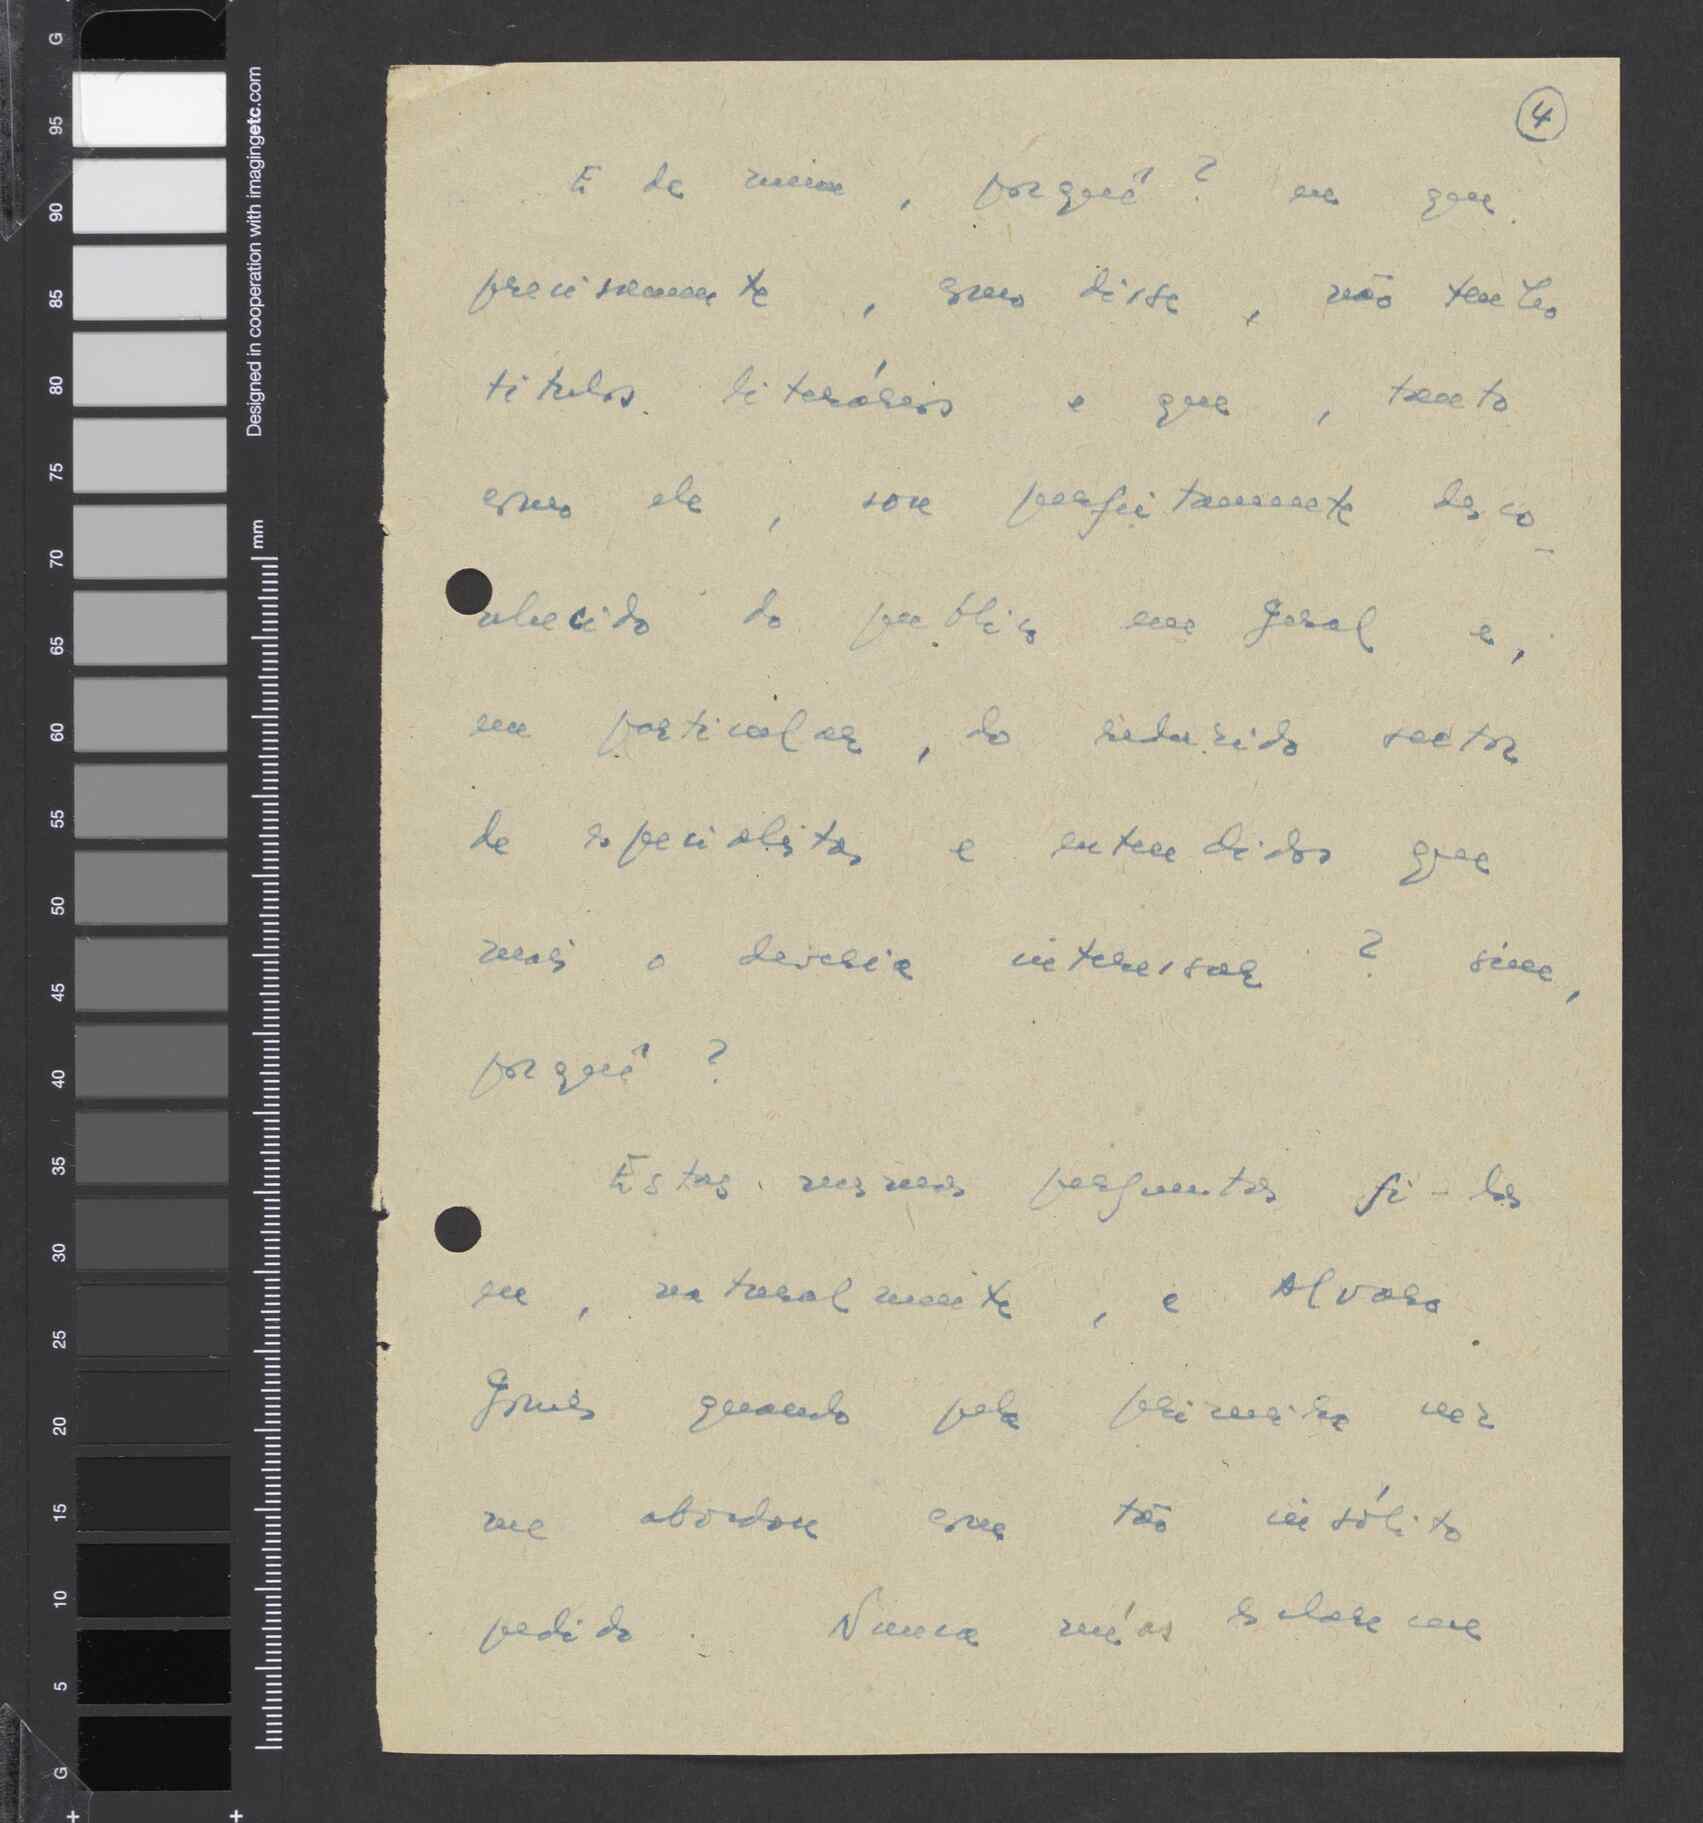 4
E de mim, porquê? eu que
precisamente, como disse, não tenho
titulos literários e que, tanto
como ele, sou perfeitamente desco-
nhecido do publico em geral e,
em particular, do reduzido sector
de especialistas e entendidos que
mais o deveria interessar? sim,
porquê?
Estas mesmas perguntas fi-las
eu, naturalmente, a Alvaro
Gomes quando pela primeira vez
me abordou com tão insólito
pedido. Nunca mas
G
95
90
85
80
75
70
65
60
55
50
45
40
35
30
25
20
15
10
5
G
Designed in cooperation with imagingetc.com
mm